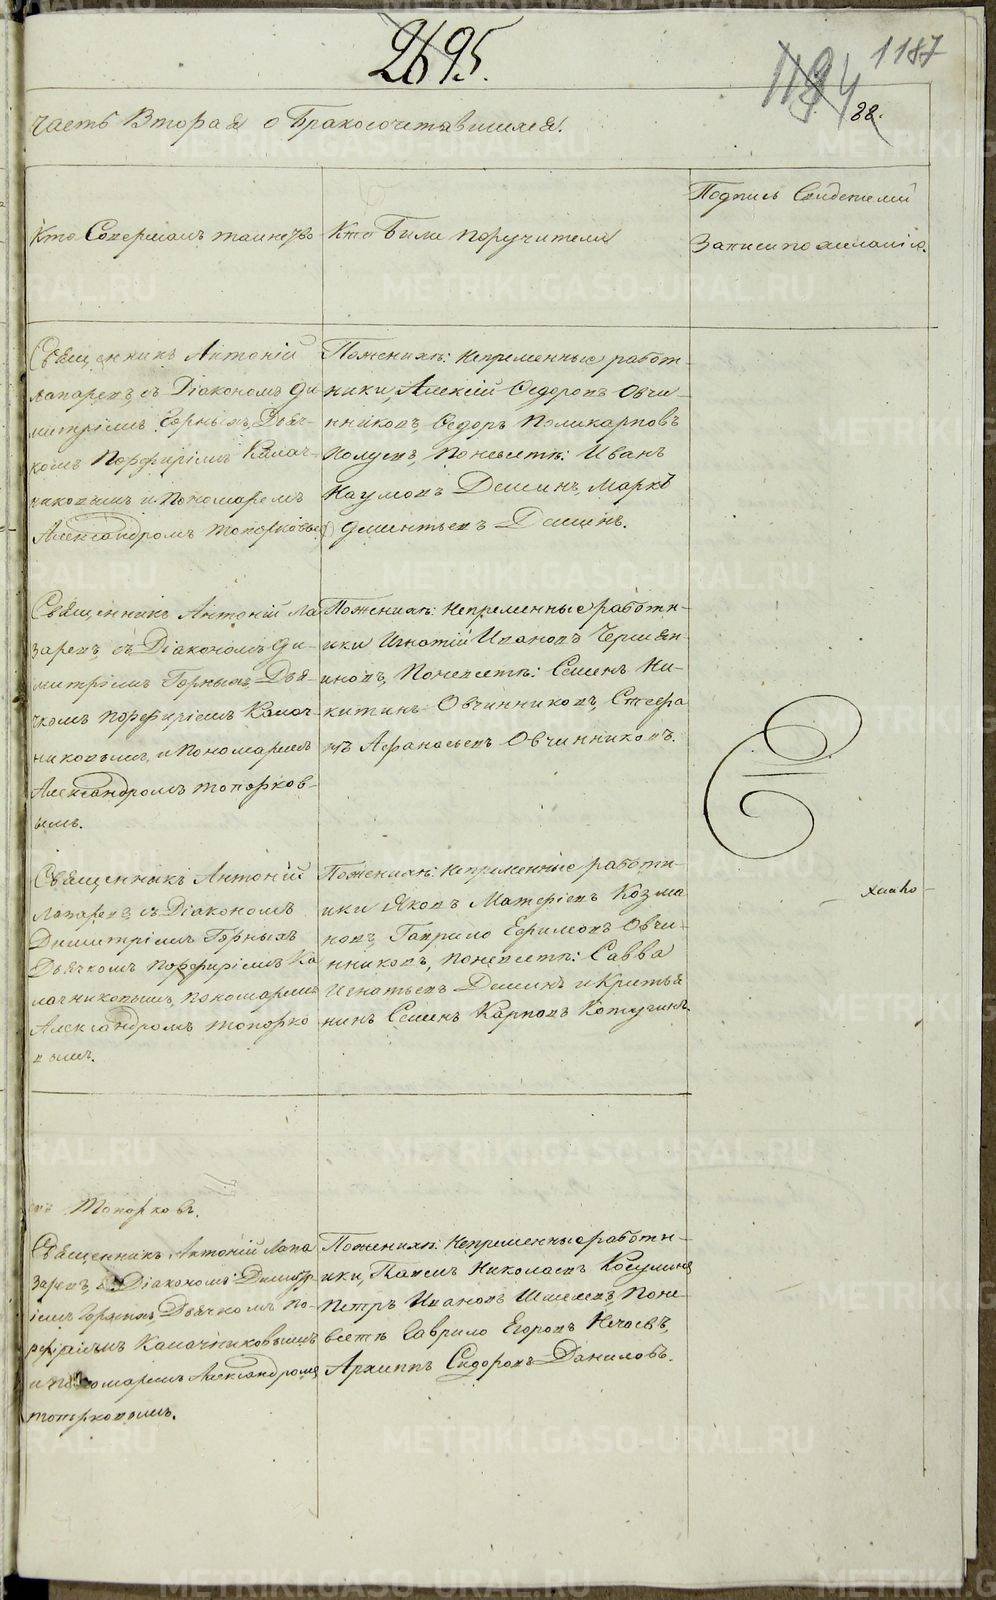 2695.
1187
1194
88.
часть Вторая о Бракосочетавшихся.
Кто Совершалъ таинство
Кто Были поручители
Подпись Свидетелей
Записи по желанію.
Священникъ Антоній
Лазаревъ, съ Діакономъ Ди-
митріемъ Горныхъ, Дьяч-
комъ Порфиріемъ Калач-
никовымъ и Пономаремъ
Александромъ Топорковы
Пожених: Непременные работ-
ники, Алексій Федоровъ Овчи-
нниковъ, Федоръ Поликарповъ
Поневестѣ: Иванъ
Наумовъ Деминъ, Маркъ
Дементьевъ Деминъ.
Священникъ Антоній Ла-
заревъ, съ Діакономъ Ди-
митріемъ Горныхъ, Дья-
чкомъ Порфиріемъ Калач-
никовымъ, и Пономаремъ
Александромъ Топорков-
ымъ.
Поженихѣ: Непременные работн-
ики Игнатій Ивановъ Чермян-
иновъ, Поневестѣ: Семенъ Ни-
китинъ Овчинниковъ, Стефа
нъ Афанасьевъ Овчинниковъ.
Священникъ Антоній
Лазаревъ съ Діакономъ
Димитріемъ Горныхъ
Дьячкомъ Порфиріемъ Ка
лачниковымъ, Пономаремъ
Александромъ Топорко
вымъ.
Поженихѣ: Непременные работн-
ики Яковъ Матфіевъ Козма
новъ, Гаврило Ефимовъ Овчи-
нниковъ, Поневестѣ: Савва
Игнатьевъ Деминъ и Крестья
нинъ Семенъ Карповъ Котугинъ.
Хиано
въ Топорковъ.
Священникъ Антоній Лаза
заревъ, съ Діакономъ Димитр-
іемъ Горныхъ, Дьячкомъ По-
рфиріемъ Калачниковымъ
и Пономаремъ Александромъ
Топорковымъ.
Поженихѣ: Непременные работн-
ики, Павелъ Николаевъ Косулинъ
Петръ Ивановъ Шмелевъ, Поне
вестѣ Гаврило Егоровъ Нечаевъ,
Архиппъ Сидоровъ Даниловъ.
METRIKI.GASO-URAL.RU